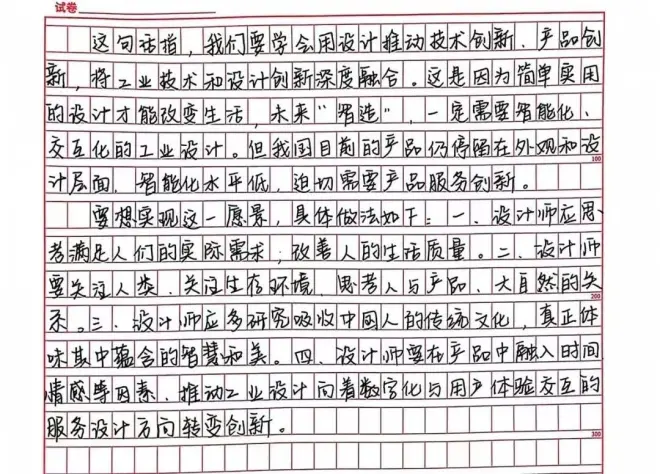 试卷
这句话指，我们要学会用设计推动技术创新、产品创
新，将工业技术和设计创新深度融合。这是因为简单实用
的设计才能改变生活，未来“智造”，一定需要智能化、
交互化的工业设计。但我国目前的产品仍停留在外观和设
计层面，智能化水平低，迫切需要产品服务创新。
100
要想实现这一愿景，具体做法如下：一、设计师应思
考满足人们的实际需求，改善人的生活质量。二、设计师
要关注人类、关注生存环境、思考人与产品、大自然的关
系。三、设计师应多研究吸收中国人的传统文化，真正体
200
味其中蕴含的智慧和美。四、设计师要在产品中融入时间、
情感等因素、推动工业设计向着数字化与用户体验交互的
服务设计方向转变创新。
300